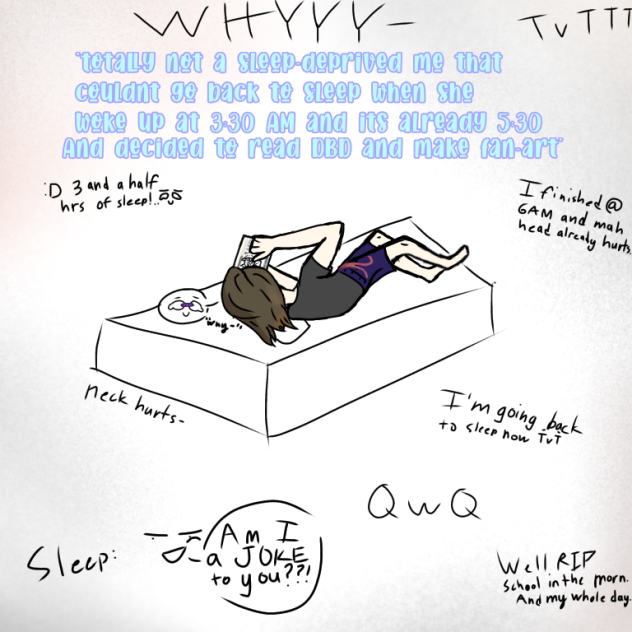 WHYYY-
TvTTT
"totally not a sleep-deprived me that
couldnt go back to sleep when she
woke up at 3:30 AM and its already 5:30
And decided to read DBD and make fan-art"
:D 3 and a half
hrs of sleep!..
I finished @
6AM and mah
head already hurts.
"why-"
neck hurts-
I'm going back
to sleep now TvT
QwQ
Sleep:
Am I
a JOKE
to you??!
Well RIP
School in the morn.
And my whole day.